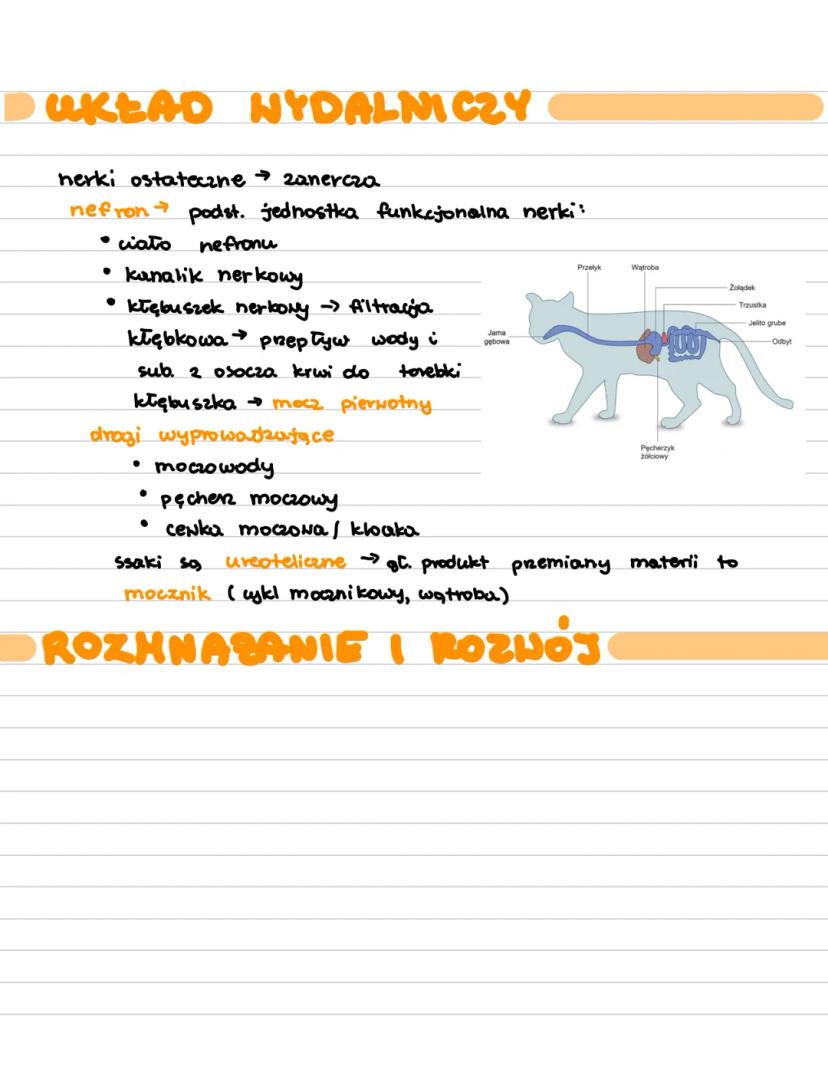 UKŁAD WYDALNICZY
nerki ostateczne → zanercza
nefron → podst. jednostka funkcjonalna nerki:
• ciało nefronu
• kanalik nerkowy
• kłębuszek nerkowy → filtracja
kłębkowa → przepływ wody i
sub. z osocza krwi do torebki
kłębuszka → mocz pierwotny
drogi wyprowadzające
• moczowody
• pęcherz moczowy
• cewka moczowa / kloaka
ssaki są ureoteliczne → gł. produkt przemiany materii to
mocznik (cykl mocznikowy, wątroba)
Przełyk
Wątroba
Żołądek
Trzustka
Jelito grube
Odbyt
Jama
gębowa
Pęcherzyk
żółciowy
ROZMNAŻANIE I ROZWÓJ